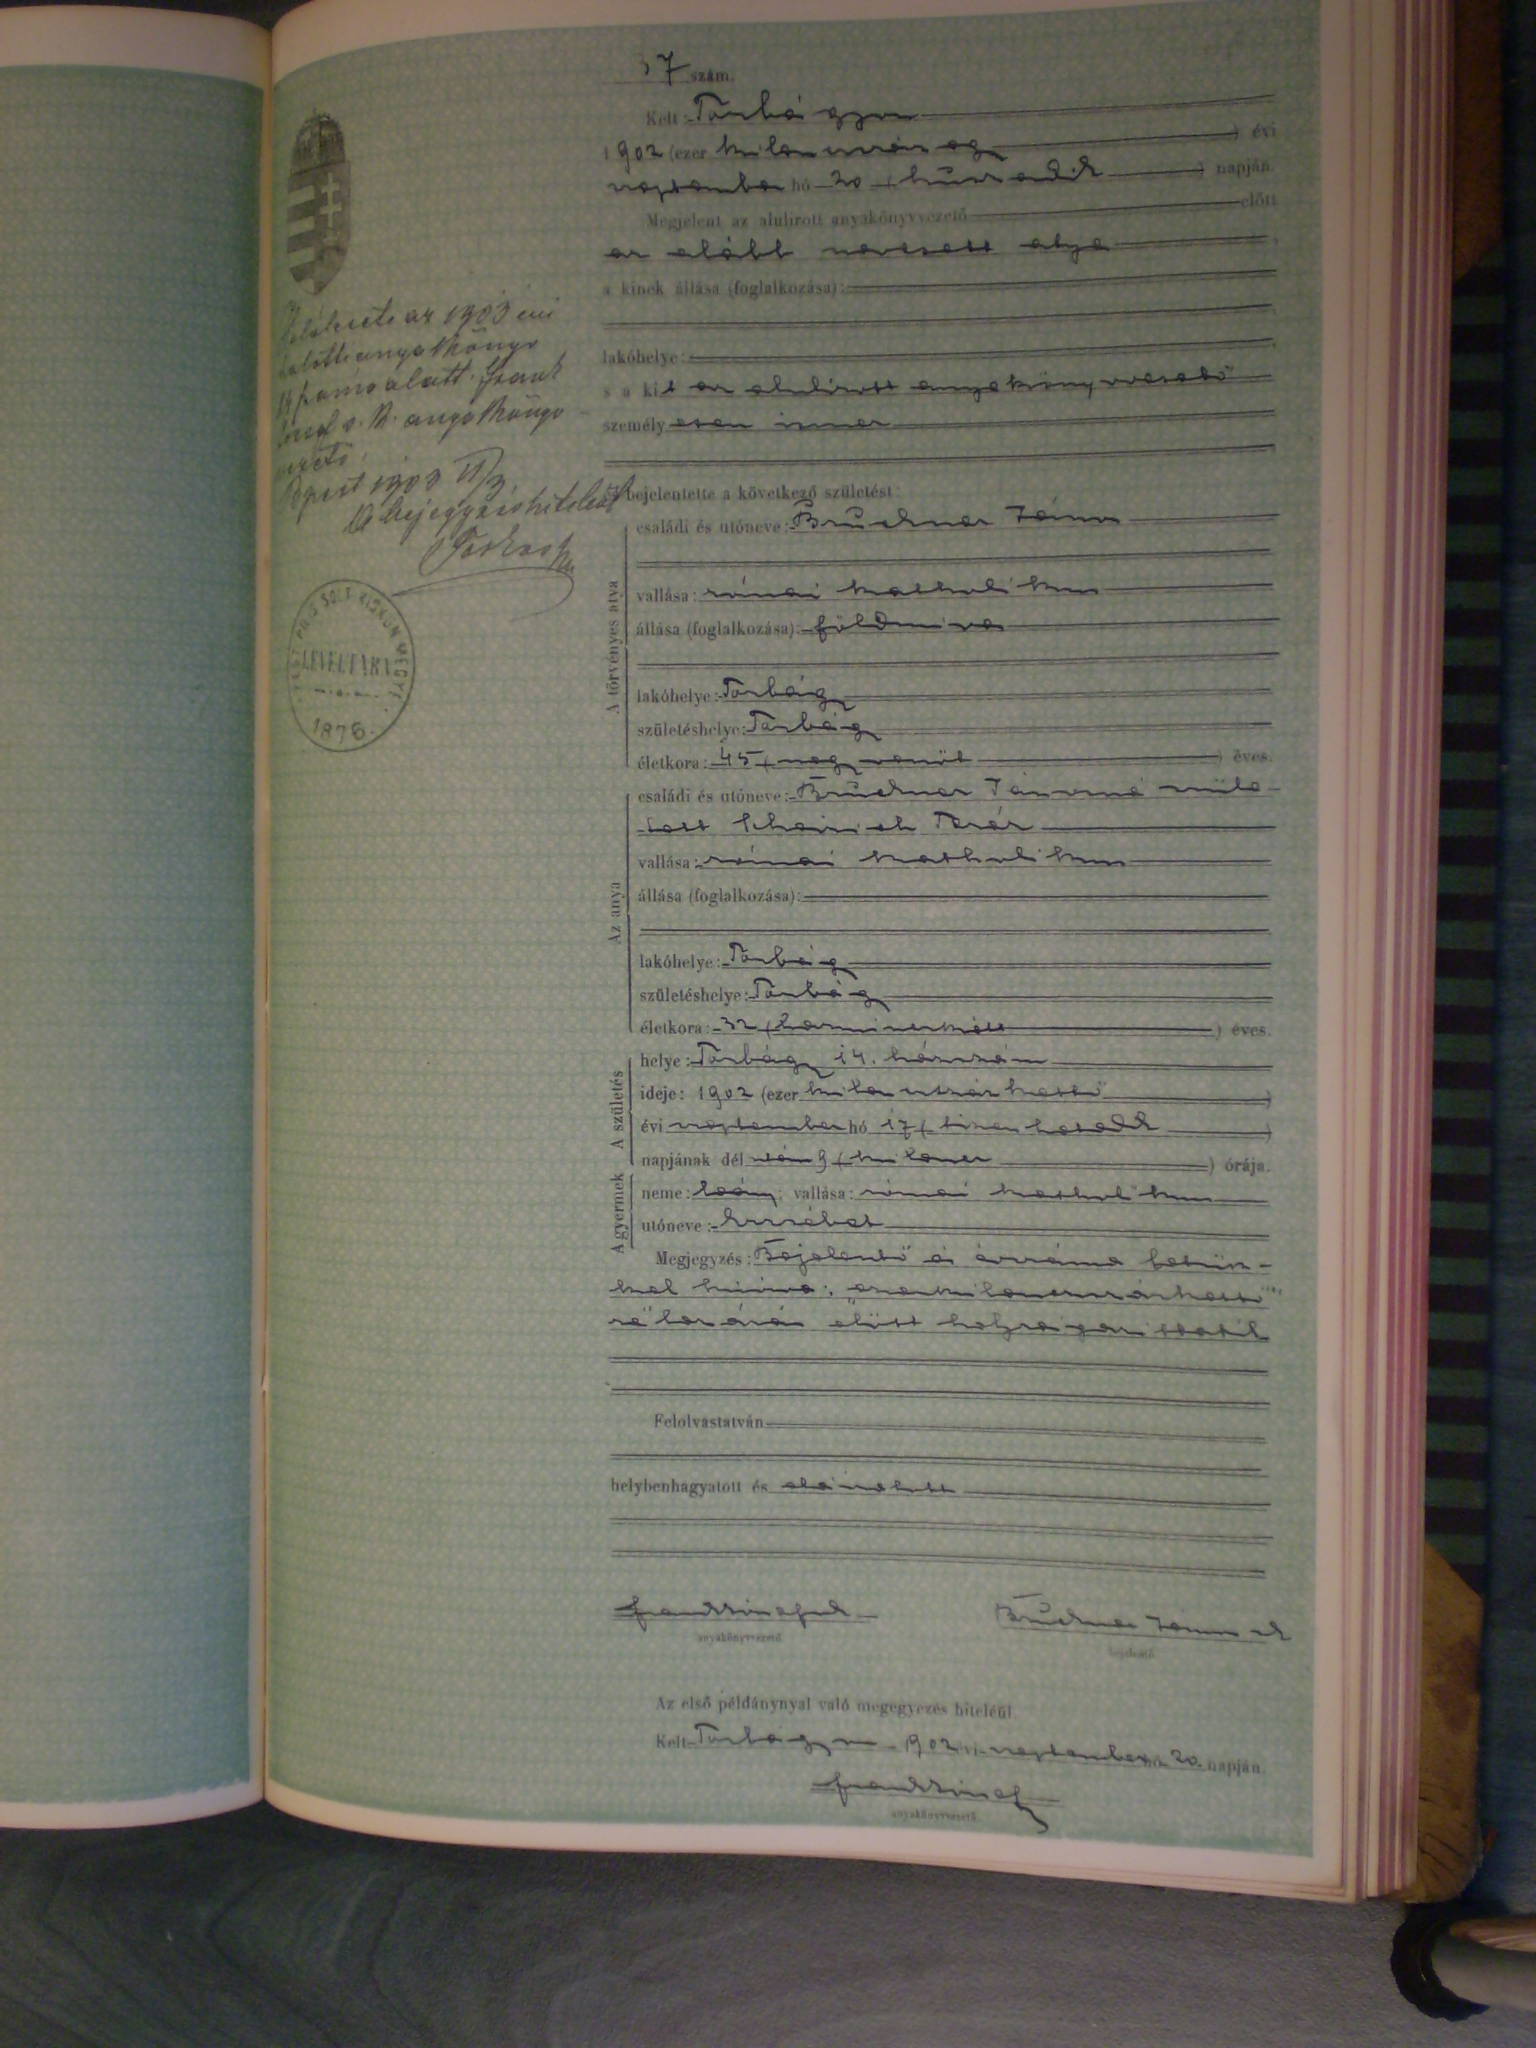 37 szám.
Kelt: Torbágyon
1902 (ezer kilencszáz ) évi
szeptember hó 20 (huszadik ) napján.
Megjelent az alulírott anyakönyvvezető előtt
az alább nevezett atya
a kinek állása (foglalkozása):
lakóhelye:
s a kit az alulirott anyakönyvvezető
személyesen ismer
és bejelentette a következő születést:
A törvényes atya
családi és utóneve: Bruckner János
vallása: római katholikus
állása (foglalkozása): földmives
lakóhelye: Torbágy
születéshelye: Torbágy
életkora: 45 (negyvenöt ) éves.
Az anya
családi és utóneve: Bruckner Jánosné szüle-
tett Teréz
vallása: római katholikus
állása (foglalkozása):
lakóhelye: Torbágy
születéshelye: Torbágy
életkora: 32 (harminczkettő ) éves.
A születés
helye: Torbágy 14. házszám
ideje: 1902 (ezer kilenczszázkettő )
évi szeptember hó 17 ( )
napjának dél után 9 (kilencz ) órája.
A gyermek
neme: leány; vallása: római katholikus
utóneve: Erzsébet
Megjegyzés: Bejelentő
Felolvastatván
helybenhagyatott és aláiratott
anyakönyvvezető
Bruckner János
bejelentő.
Az első példánynyal való megegyezés hiteléül.
Kelt Torbágyon 1902 szeptember hó 20. napján.
anyakönyvvezető.
az 1903 évi
halotti anyakönyv
alatt. Frank
József s. k. anyakönyv
vezető.
Bpest 1903
A bejegyzés hiteléül
PEST PILIS SOLT KISKUN MEGYE
LEVELTÁRA
1876.